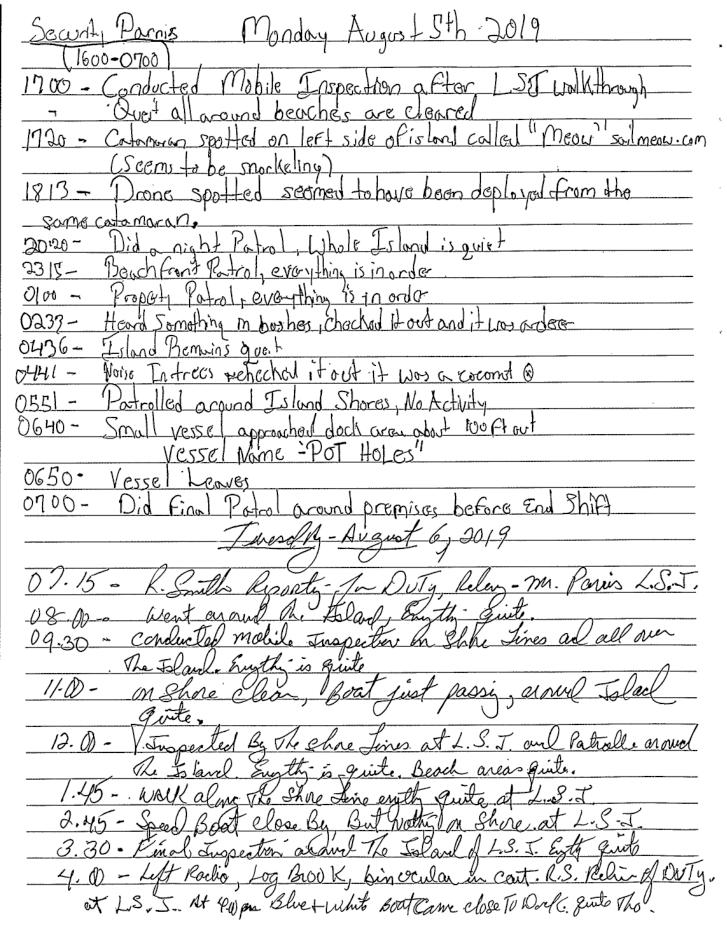 Security Parris Monday August 5th 2019
1600-0700
1700 - Conducted Mobile Inspection after LSJ walkthrough
- Quet all around beaches are cleared
1720 - Catamaran spotted on left side of island called "Meow" sailmeow.com
(Seems to be snorkeling)
1813 - Drone spotted seemed to have been deployed from the
same catamaran.
2020 - Did a night Patrol, Whole Island is quiet
2315 - Beachfront Patrol, everything is in order
0100 - Property Patrol, everything is in order
0233 - Heard Something in bushes, checked it out and it was a deer
0436 - Island Remains quet
0441 - Noise In trees checked it out it was a coconut
0551 - Patrolled around Island Shores, No Activity
0640 - Small vessel approached dock area about 100 ft out
Vessel Name - "POT HOLES"
0650 - Vessel Leaves
0700 - Did Final Patrol around premises before End Shift
Tuesday - August 6, 2019
07.15 - R. Smith Reporty for Duty, Relev - Mr. Parris L.S.J.
08.00 - went around the Island, Enythy Quite.
09.30 - conducted mobile Inspection on Shore Lines ad all over
The Island. Enythy is Quite
11.00 - on Shore clear, Boat just passig, around Islad
Quite.
12.00 - Inspected By The shore Lines at L.S.J. and Patrolle around
The Island. Enythy is quite. Beach areas quite.
1.45 - walk along The Shore Line enyth quite at L.S.J.
2.45 - Speed Boat close By, But Nothig on Shore at L.S.J.
3.30 - Final Inspection around The Island of L.S.J. Enyth quite
4.00 - Left Radio, Log Brook, binocular in cart. R.S. Relive of Duty.
at L.S.J. At 4:00 pm Blue + white Boat Came close To Dock. quite Tho.